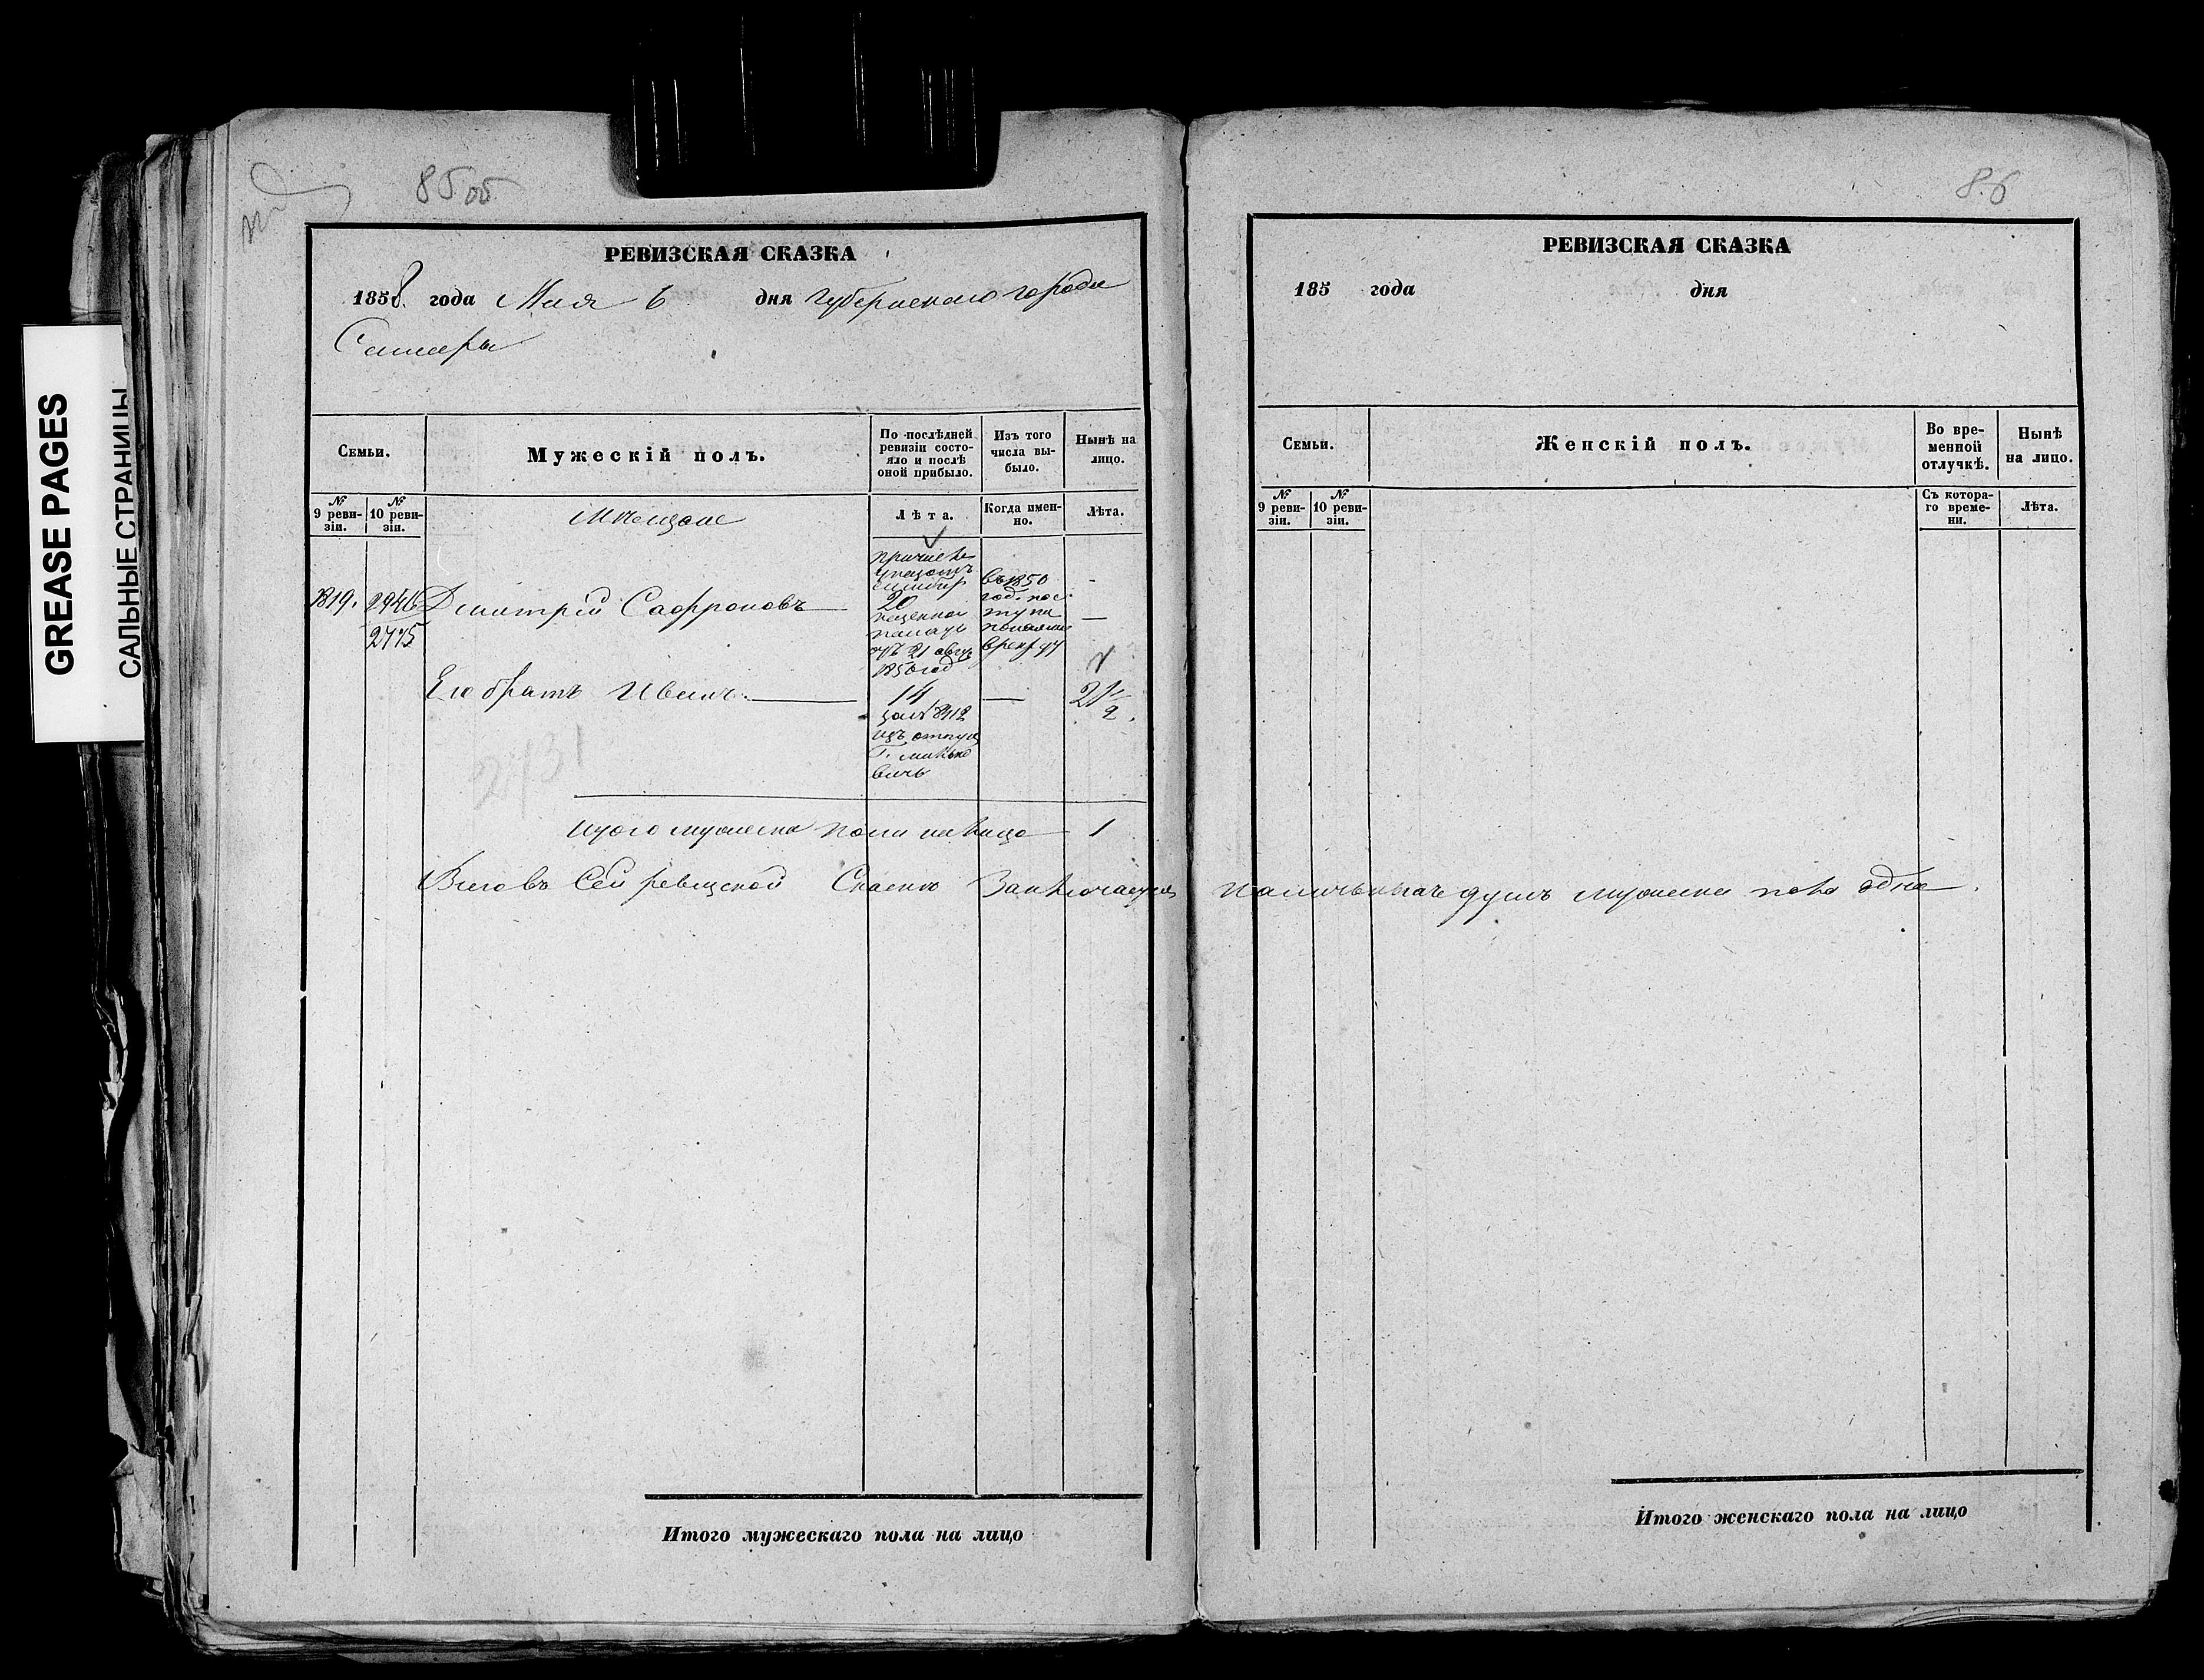 GREASE PAGES
САЛЬНЫЕ СТРАНИЦЫ
85 об
РЕВИЗСКАЯ СКАЗКА
1858 года Мая 6 дня губернскаго города
Самары
Семьи.
Мужескій полъ.
По послѣдней
ревизіи состо-
яло и послѣ
оной прибыло.
Изъ того
числа вы-
было.
Нынѣ на
лицо.
№
9 реви-
зіи.
№
10 реви-
зіи.
Мѣщане
Лѣта.
Когда имен-
но.
Лѣта.
1819. 2946 Дмитрій Сафроновъ
2775
20
казенной
палаты
отъ 21 авгу
1850 год
въ 1850
год. пос
тупи
Его братъ Иванъ 14 — 21 1/2
изъ отпущ
2731
Итого мужеска пола на лицо 1
Всего въ Сей ревизской Сказке Заключается наличныхъ душъ мужеска пола одна.
86
РЕВИЗСКАЯ СКАЗКА
185 года дня
Семьи.
Женскій полъ.
Во вре-
менной
отлучкѣ.
Нынѣ
на лицо.
№
9 реви-
зіи.
№
10 реви-
зіи.
Съ котора-
го време-
ни.
Лѣта.
Итого мужескаго пола на лицо
Итого женскаго пола на лицо